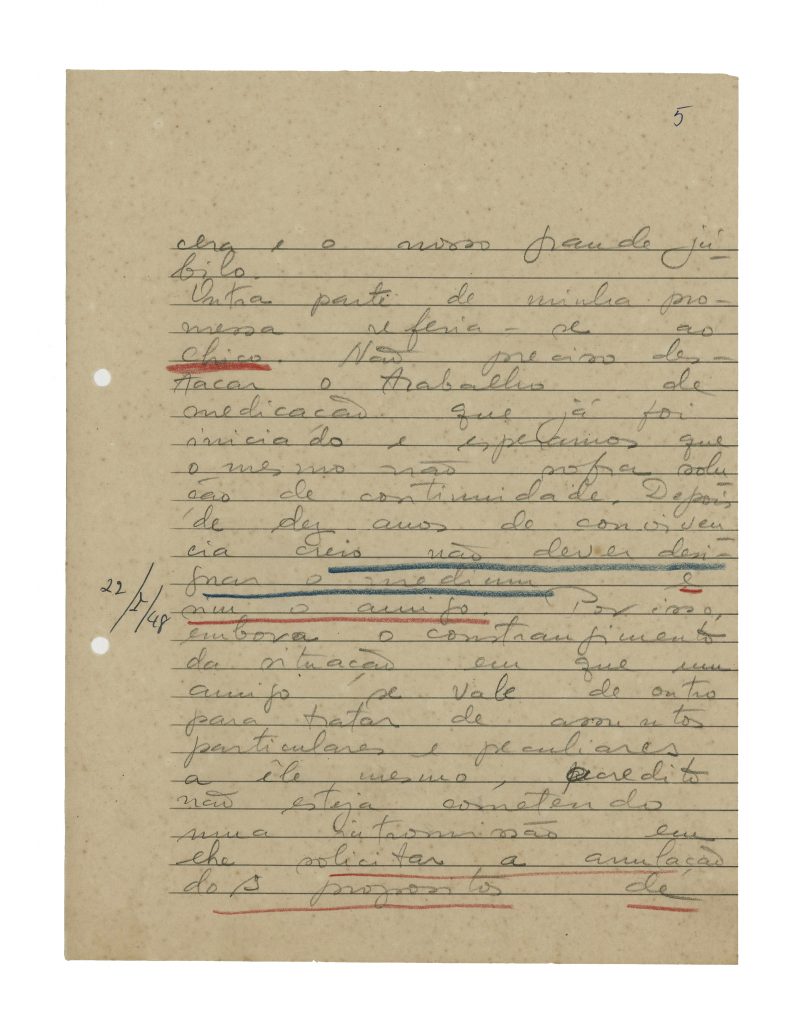 5
cera e o nosso grande jú-
bilo.
Outra parte de minha pro-
messa referia-se ao
Chico. Não preciso des-
tacar o trabalho de
medicação que já foi
iniciado e esperamos que
o mesmo não sofra solu
ção de continuidade. Depois
de dez anos de conviven
cia creio não dever desi-
gnar o medium e
sim o amigo. Por isso,
embora o constrangimento
da situação em que um
amigo se vale de outro
para tratar de assuntos
particulares e peculiares
a êle mesmo, acredito
não esteja cometendo
uma intromissão em
lhe solicitar a anulação
dos propositos de
22/I/48